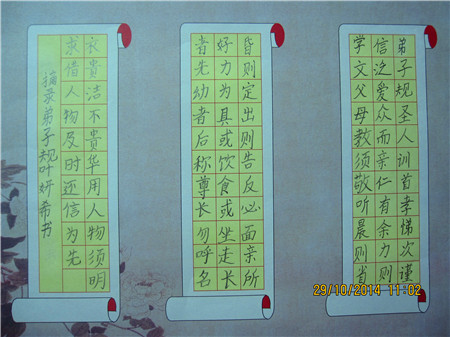 弟子规圣人训首孝悌次谨
信泛爱众而亲仁有余力则
学文父母教须敬听晨则省
昏则定出则告反必面亲所
好力为具或饮食或坐走长
者先幼者后称尊长勿呼名
衣贵洁不贵华用人物须明
求借人物及时还信为先
摘录弟子规叶妍希书
29/10/2014 11:02